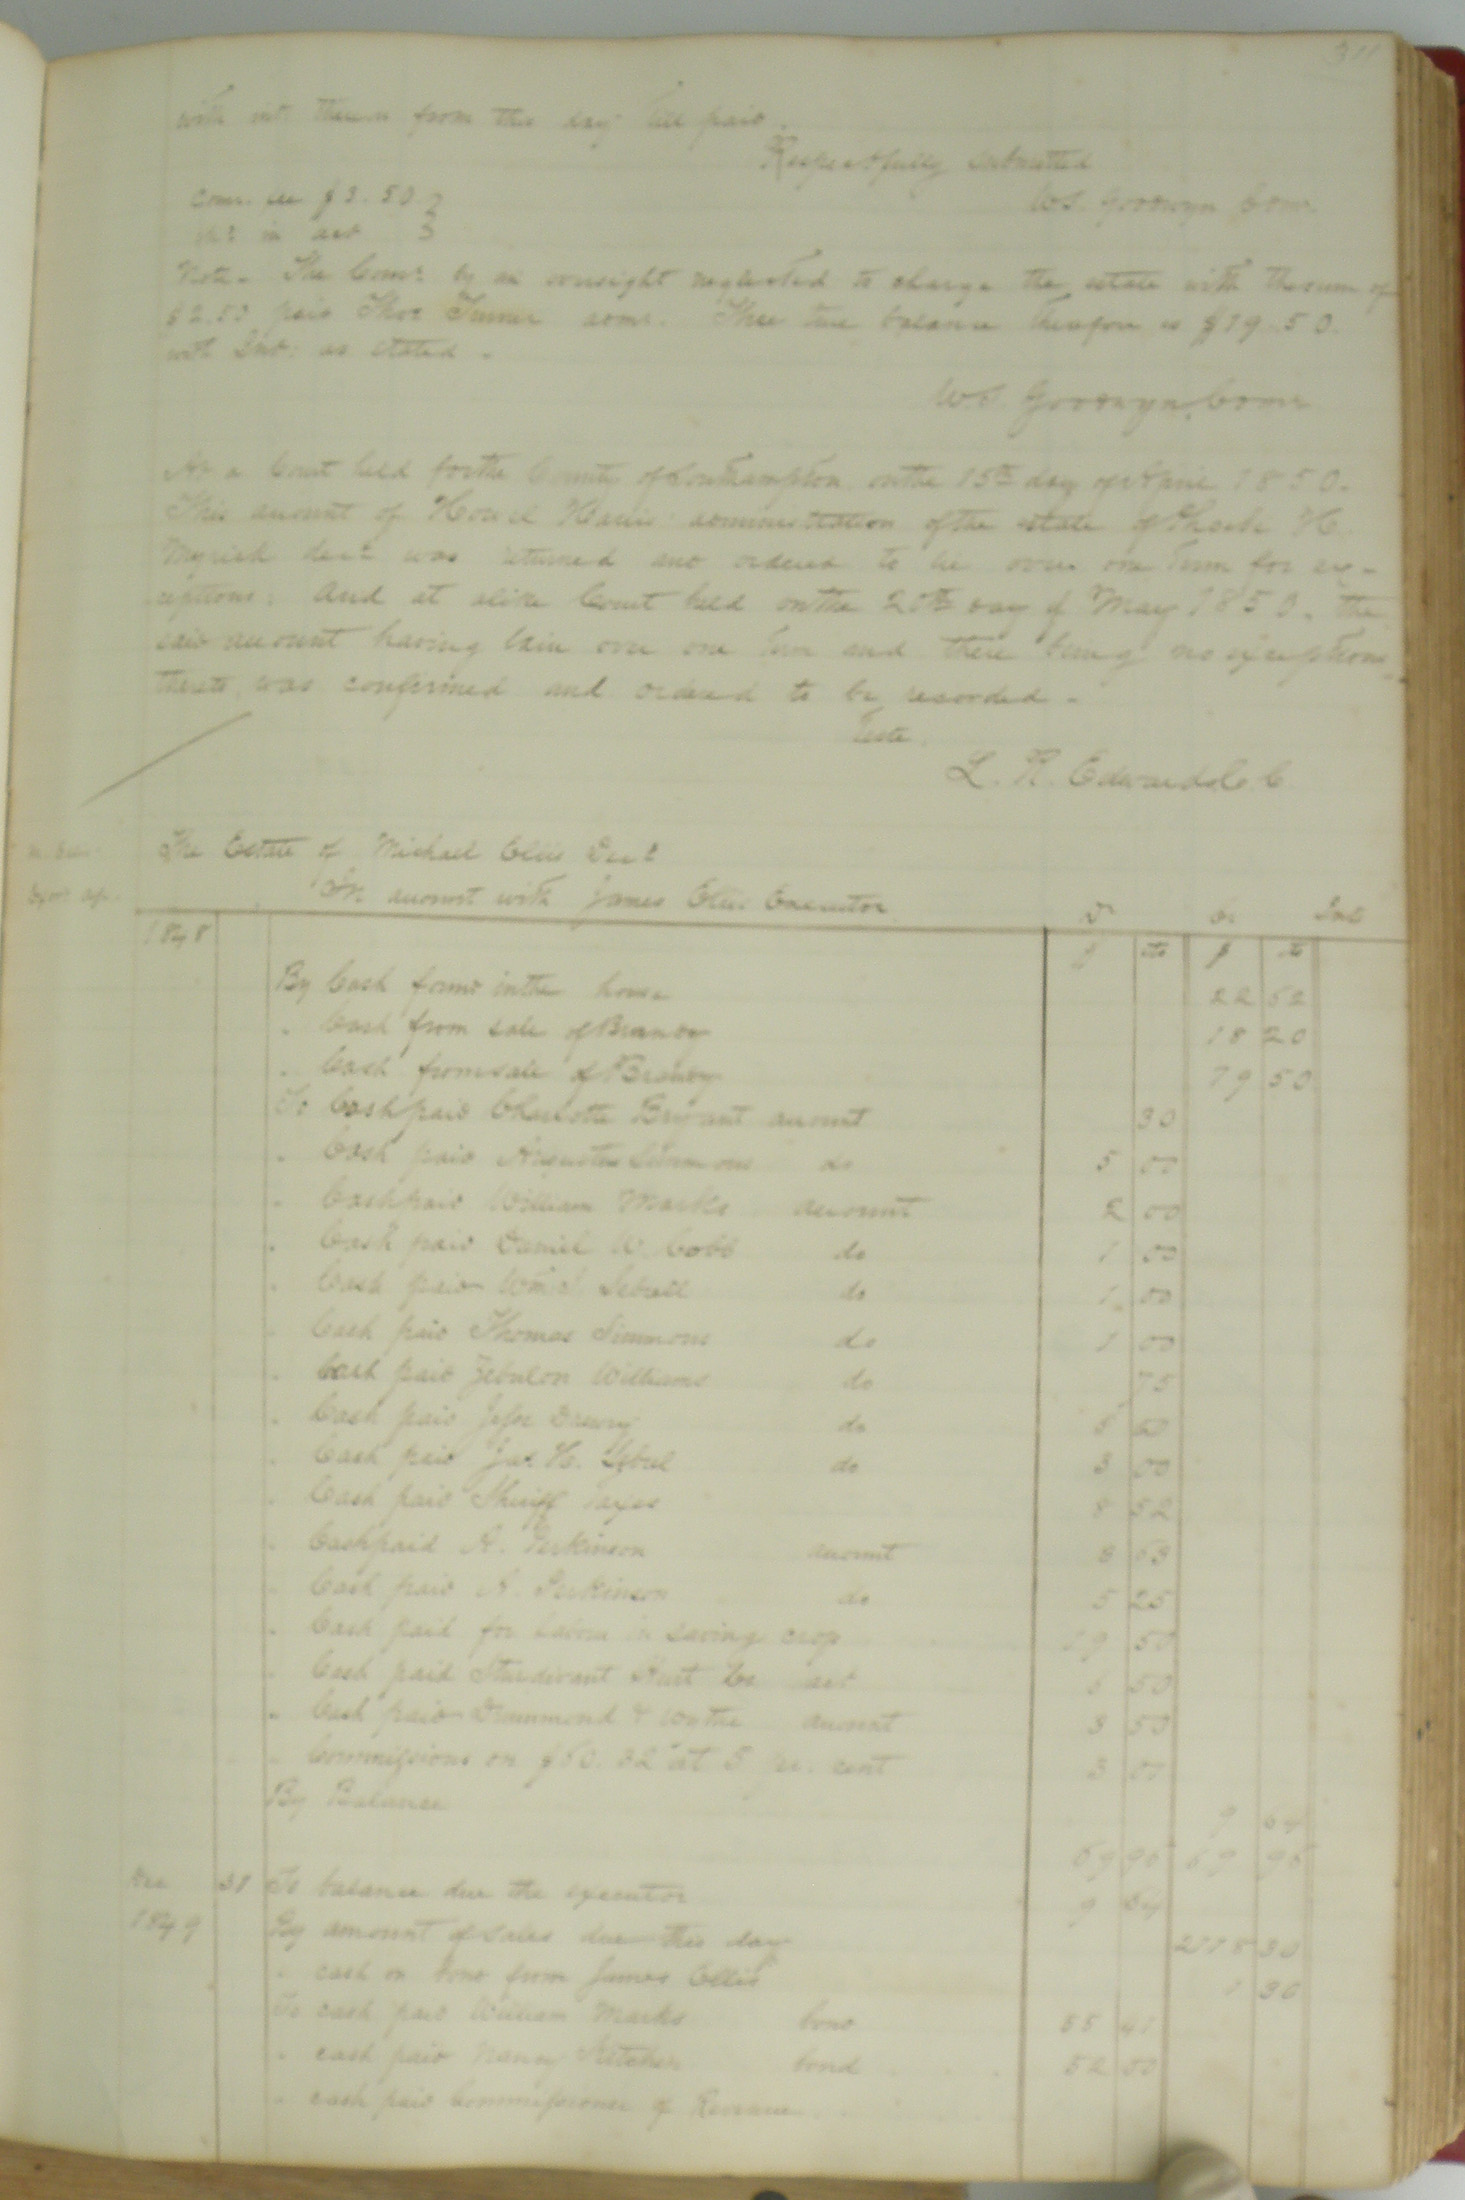 311
with int thereon from this day till paid.
Respectfully Submitted
Com. fee $3.50
W.S. Goodwyn Comr.
in act
Note. The Comr. by an oversight neglected to charge the estate with the sum of
$2.50 paid Thos Turner admr. The true balance therefore is $19.50.
with Int: as stated.
W.S. Goodwyn Comr
At a Court held for the County of Southampton on the 15th day of April 1850.
This account of Howel Harris administration of the estate of H.
Myrick decd was returned and ordered to lie over one term for ex-
ceptions: And at alike Court held on the 20th day of May 1850. the
said account having lain over one term and there being no exceptions
thereto, was confirmed and ordered to be recorded.
Teste.
L. R. Edwards C. C.
The Estate of Michael Ellis Decd
In account with James Ellis Executor Dr Cr Int
1848 $ cts $ cts
By Cash found in the house 22 62
" Cash from sale of Brandy 18 20
" Cash from sale of Brandy 19 50
To Cash paid Charlotte Bryant account 30
" Cash paid Augustus Simmons do 5 00
" Cash paid William Marks account 2 00
" Cash paid Daniel W. Cobb do 1 00
" Cash paid Wm J. Sebrell do 1 00
" Cash paid Thomas Simmons do 1 00
" Cash paid Zebulon Williams do 75
" Cash paid Jesse Drewry do
" Cash paid Jas. H. do 3 00
" Cash paid Sheriff Taxes 8 52
" Cash paid A. Parkinson account 8 63
" Cash paid A. Parkinson do 5 25
" Cash paid for labour in saving crop 19 50
" Cash paid Sturdivant Hurt & Co act 50
" Cash paid Drummond & account 3 50
" Commissions on $60.32 at 5 per. cent 3 00
By Balance 9 64
69 96 69 96
Dec 31 To balance due the executor 9 64
1849 By amount of sales due this day 30
" cash on bond from James Ellis 1 30
To cash paid William Marks bond 55 41
" cash paid Nancy bond 52 00
" cash paid Commissioner of Revenue